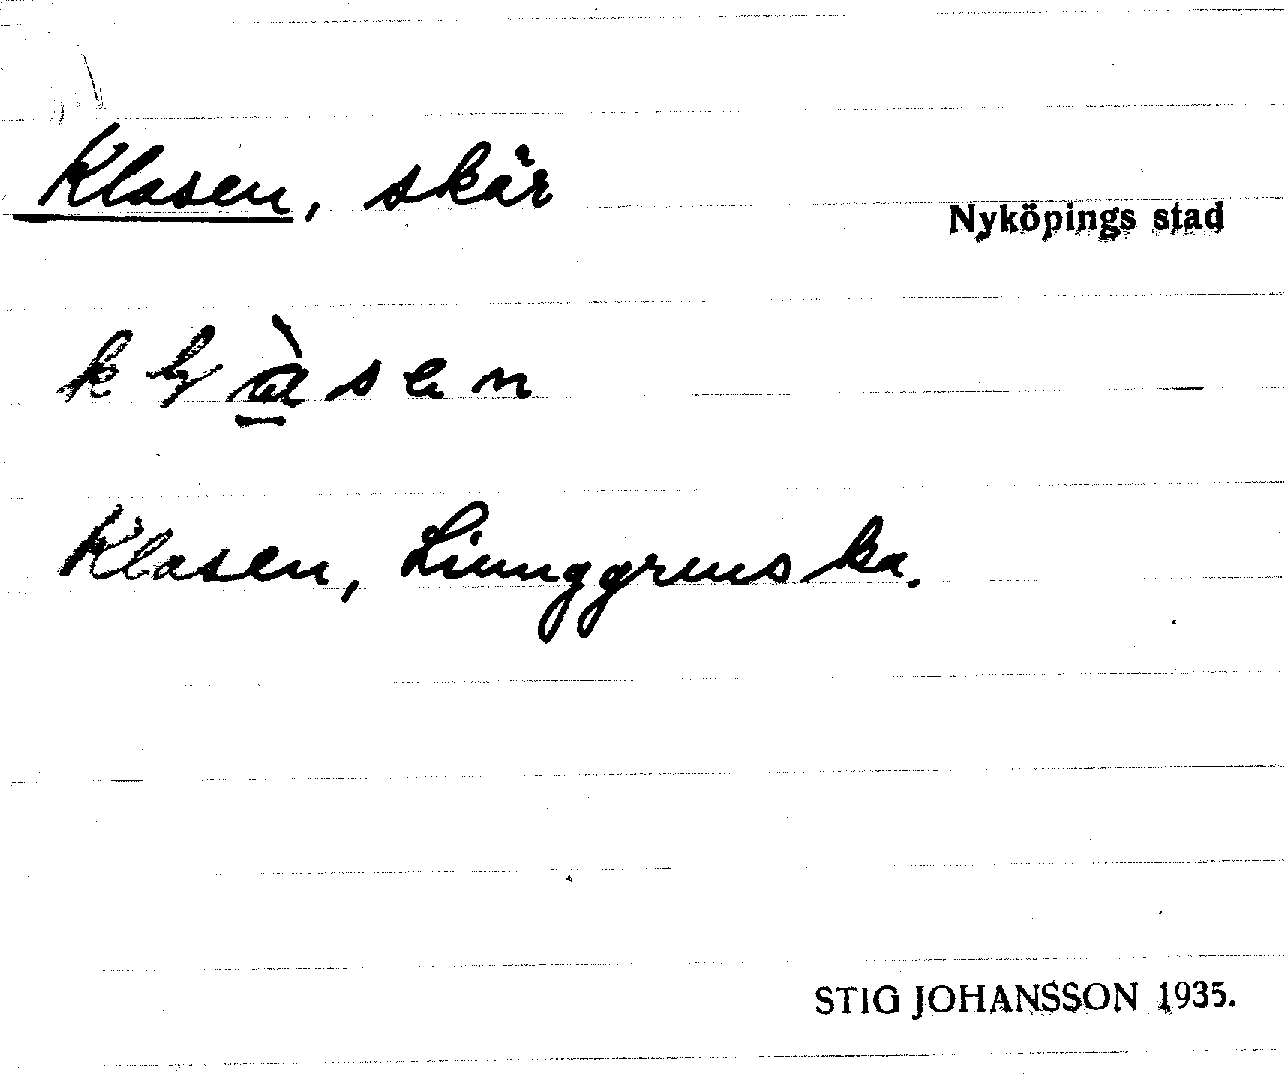 Klasen, skär
Nyköpings stad
Klasen, Ljunggrens ka.
STIG JOHANSSON 1935.